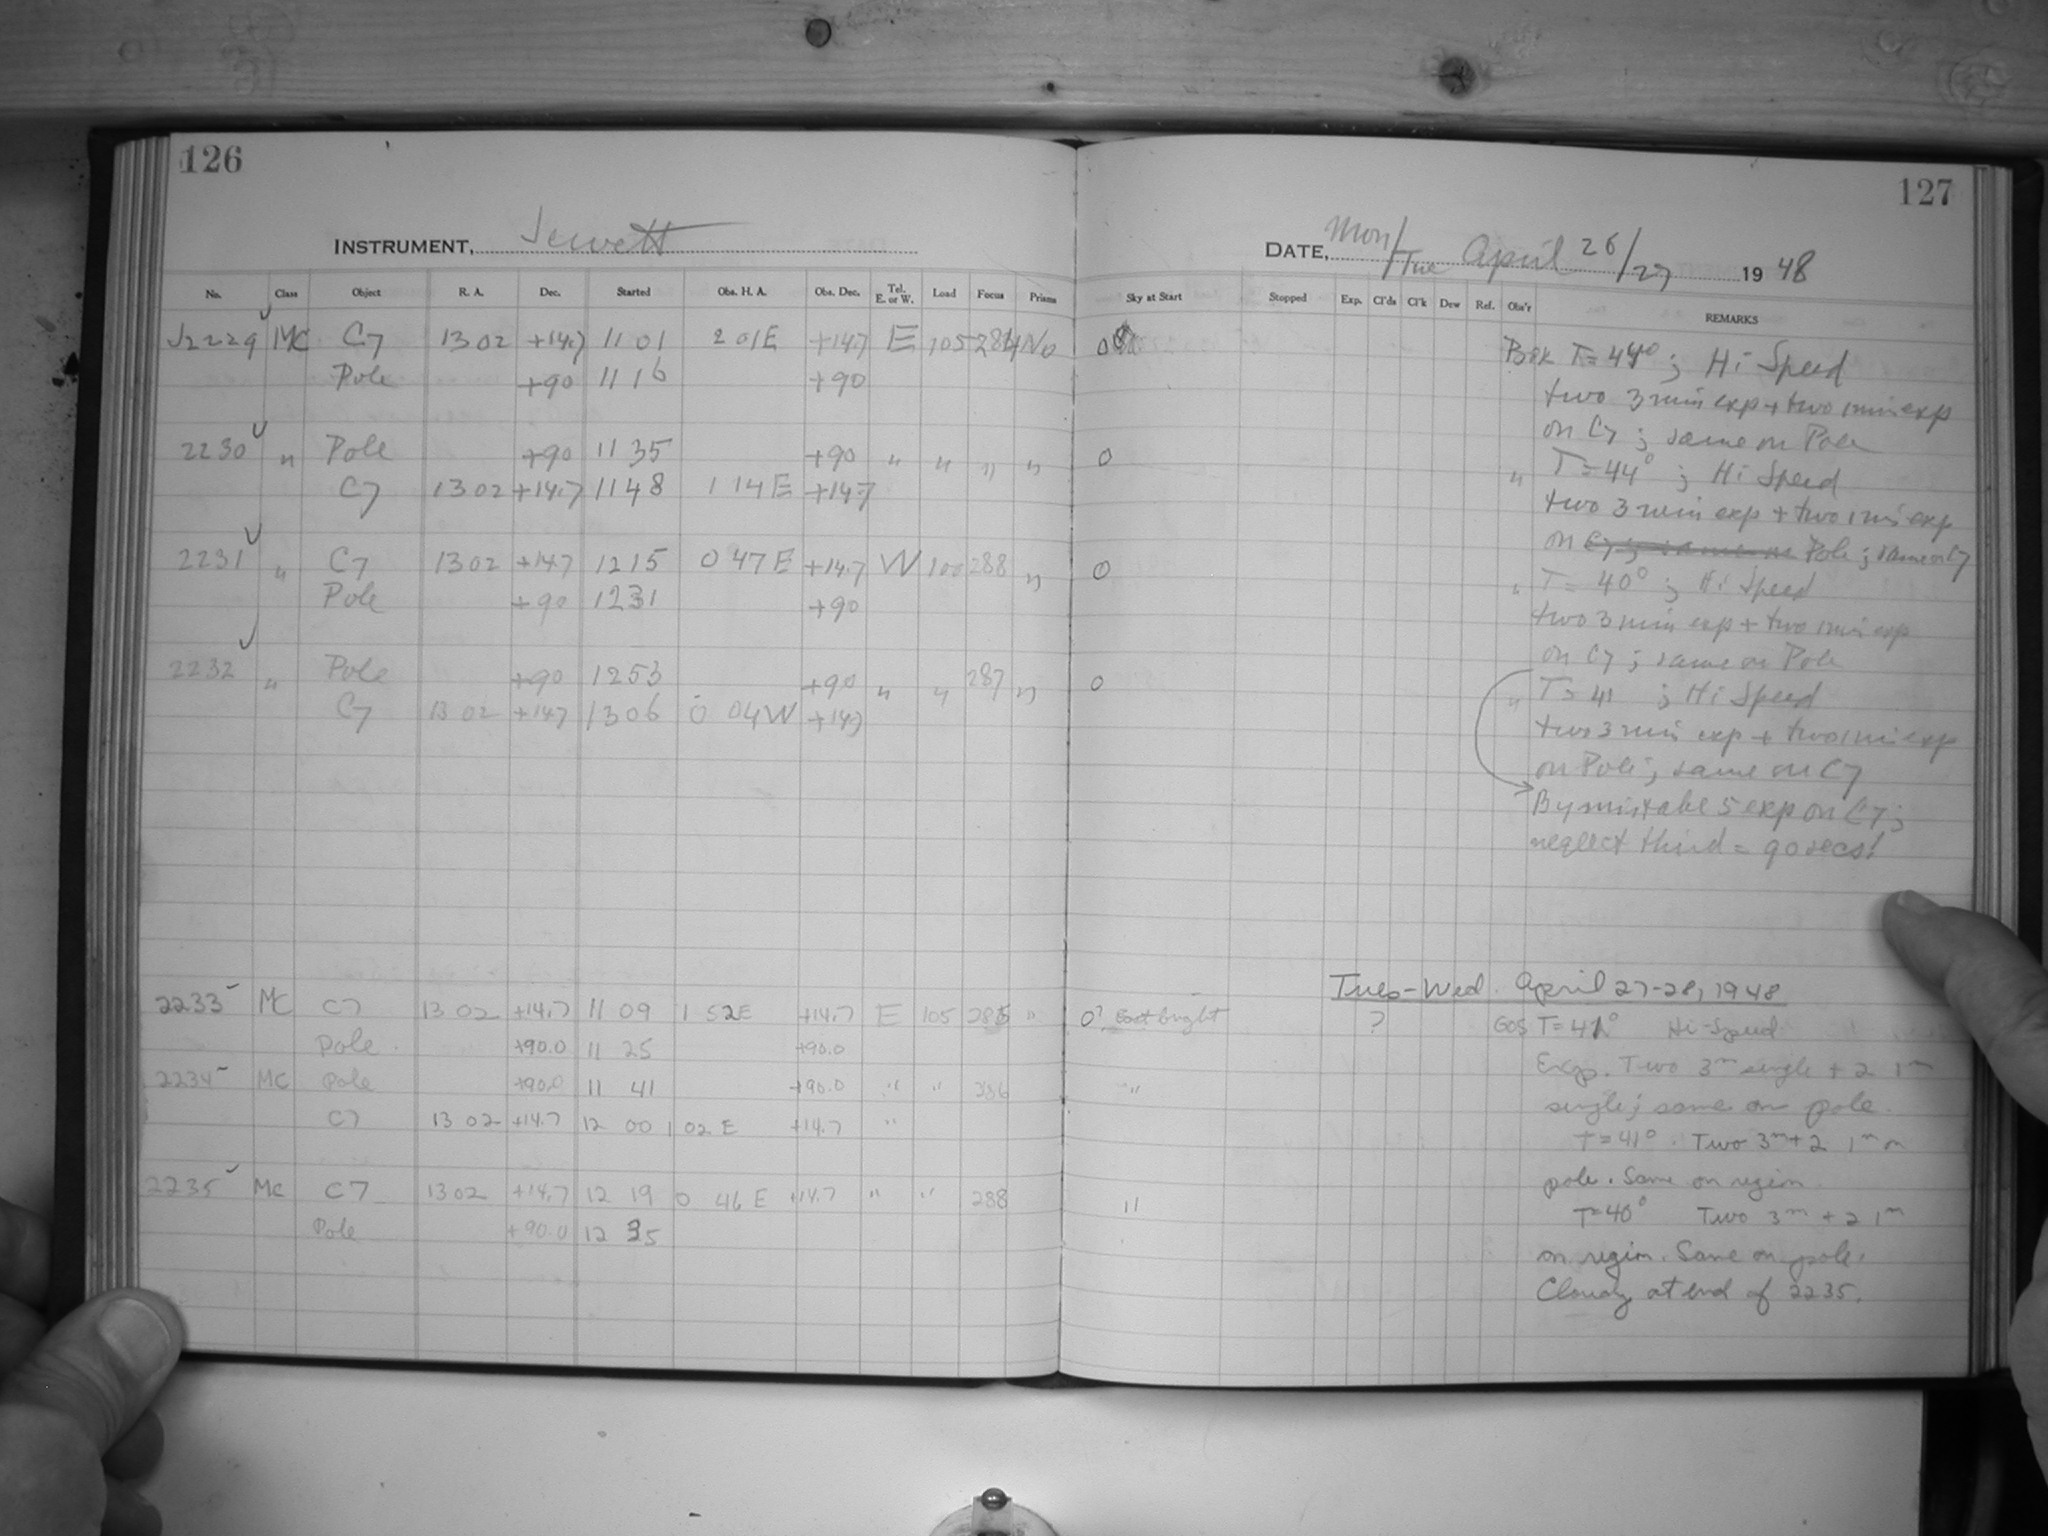 126
127
INSTRUMENT, Jewett
DATE, Mon/Tue April 26/27 1948
No. Class Object R. A. Dec. Started Obs. H. A. Obs. Dec. Tel. E. or W. Load Focus Prisms Sky at Start Stopped Exp. Cl'ds Cl'k Dew Ref. Obs'r REMARKS
J2229 MC C7 13 02 +14.7 11 01 2 01E +14.7 E 105 284 No 0 Bok T=44° ; Hi Speed
Pole +90 11 16 +90
two 3 min exp + two 1 min exp
on C7 ; same on Pole
2230 " Pole +90 11 35 +90 " " " " 0 " T=44° ; Hi Speed
C7 13 02 +14.7 11 48 1 14E +14.7
two 3 min exp + two 1 min exp
on C7; same on Pole ; same on C7
2231 " C7 13 02 +14.7 12 15 0 47E +14.7 W 100 288 " 0 " T= 40° ; Hi Speed
Pole +90 12 31 +90
two 3 min exp + two 1 min exp
on C7 ; same on Pole
2232 " Pole +90 12 53 +90 " " 287 " 0 " T=41 ; Hi Speed
C7 13 02 +14.7 13 06 0 04W +14.7
two 3 min exp + two 1 min exp
on Pole ; same on C7
By mistake 5 exp on C7 ;
neglect third = 90 secs!
Tues-Wed. April 27-28, 1948
2233 MC C7 13 02 +14.7 11 09 1 52E +14.7 E 105 285 " 0? East bright ? GOS T=41° Hi-Speed
Pole +90.0 11 25 +90.0
Exp. Two 3m single + 2 1m
2234 MC Pole +90.0 11 41 +90.0 " " 286 "
single; same on pole.
C7 13 02 +14.7 12 00 1 02 E +14.7 "
T=41°. Two 3m + 2 1m on
pole. Same on region.
2235 MC C7 13 02 +14.7 12 19 0 46 E +14.7 " " 288 "
T=40° Two 3m + 2 1m
Pole +90.0 12 35
on region. Same on pole.
Cloudy at end of 2235.